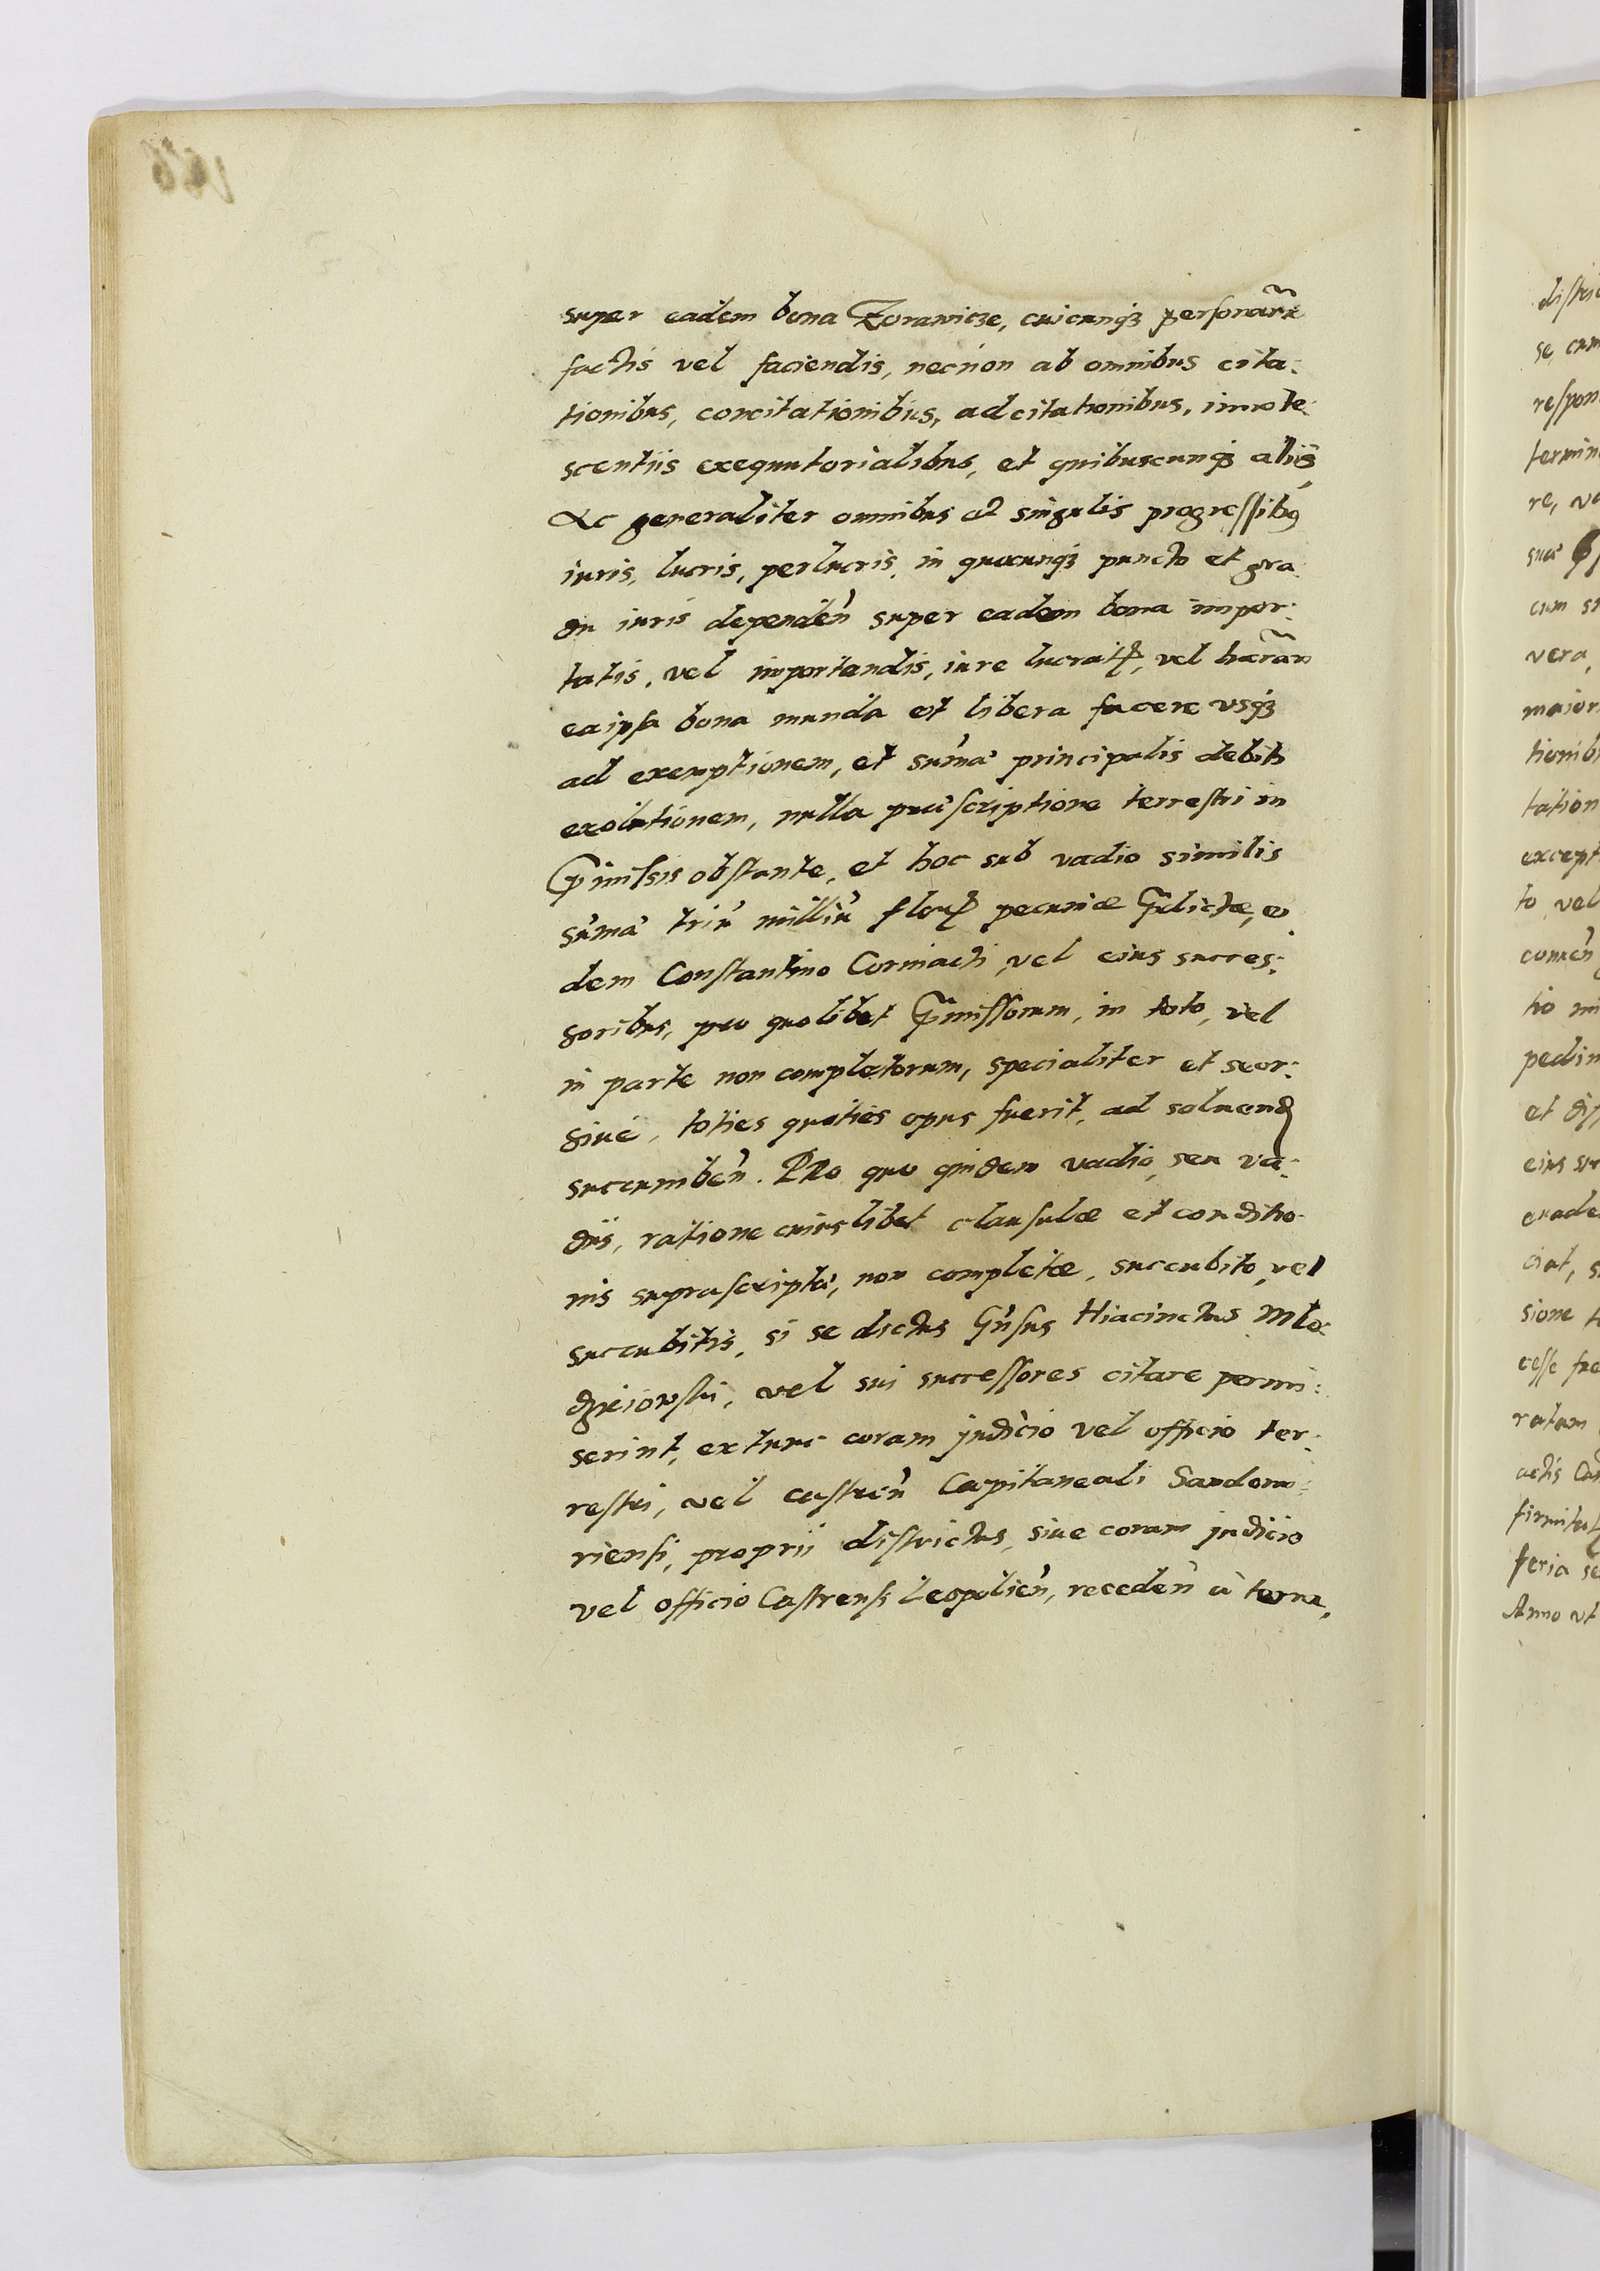 super eadem bona Zorawicze, cuicunq3 personarũ
factis vel faciendis, necnon ab omnibus cita:
tionibus, concitationibus, adcitationibus, innote:
scentiis exequutorialibus, et quibuscunq3 aliis,
Ac generaliter omnibus et singulis progressibus
iuris, lucris, perlucris, in quocunq3 puncto et gra:
du iuris dependeñ super eadem bona impor:
tatis, vel importandis, iure lucratis, vel
ea ipsa bona munda et libera facere vsq3
ad exemptionem, et suma principalis debiti
exolutionem, nulla præscriptione terrestri in
pmissis obstante, et hoc sub vadio similis
suma triu milliu flor pecuniæ plictæ, eo
dem Constantino Corniacti, vel eius succes:
soribus, pro quolibet pmissorum, in toto, vel
in parte non completorum, specialiter et seor:
siue, toties quoties opus fuerit, ad soluend
succumbeñ. PRo quo quidem vadio, seu va:
diis, ratione cuiuslibet clausulæ et conditio:
nis suprascriptæ, non completæ, succubito, vel
succubitis, si se dictus Gnsus Hiacinctus Mlo:
dzieiowski, vel sui successores citare permi:
serint, extunc coram judicio vel officio ter:
restri, vel castreñ Capitaneali Sandomi:
riensi, proprii districtus, siue coram judicio
vel officio Castrensi Leopolieñ, recedeñ à terra,